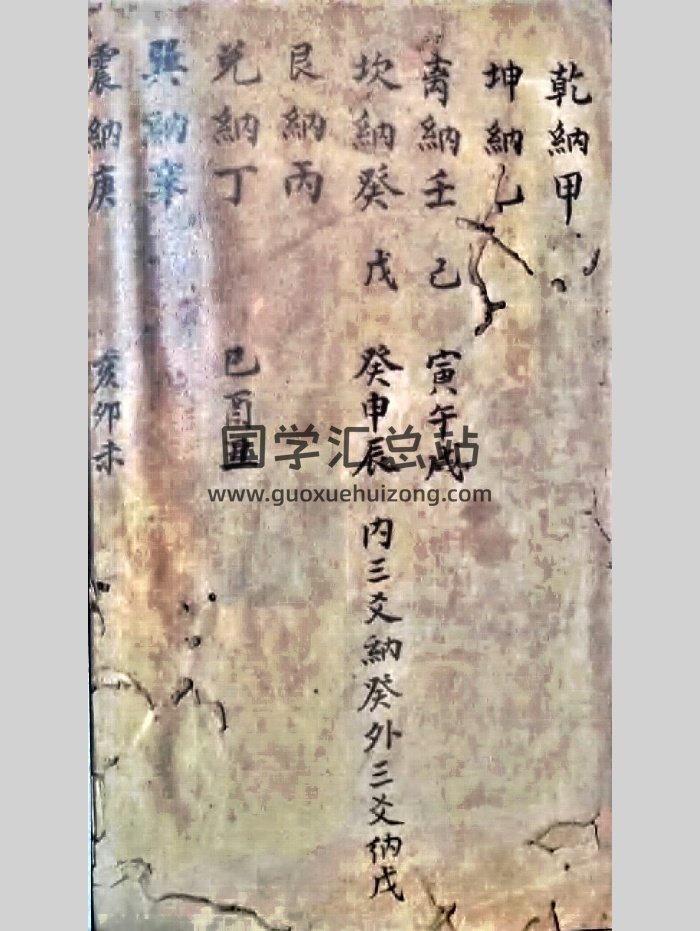 乾納甲
坤納乙
离納壬 己 寅午戌
坎納癸 戊 癸申辰 内三爻納癸外三爻纳戊
艮納丙
兌納丁 巳酉丑
巽納辛
震納庚 亥卯未
国学汇总站
www.guoxuehuizong.com